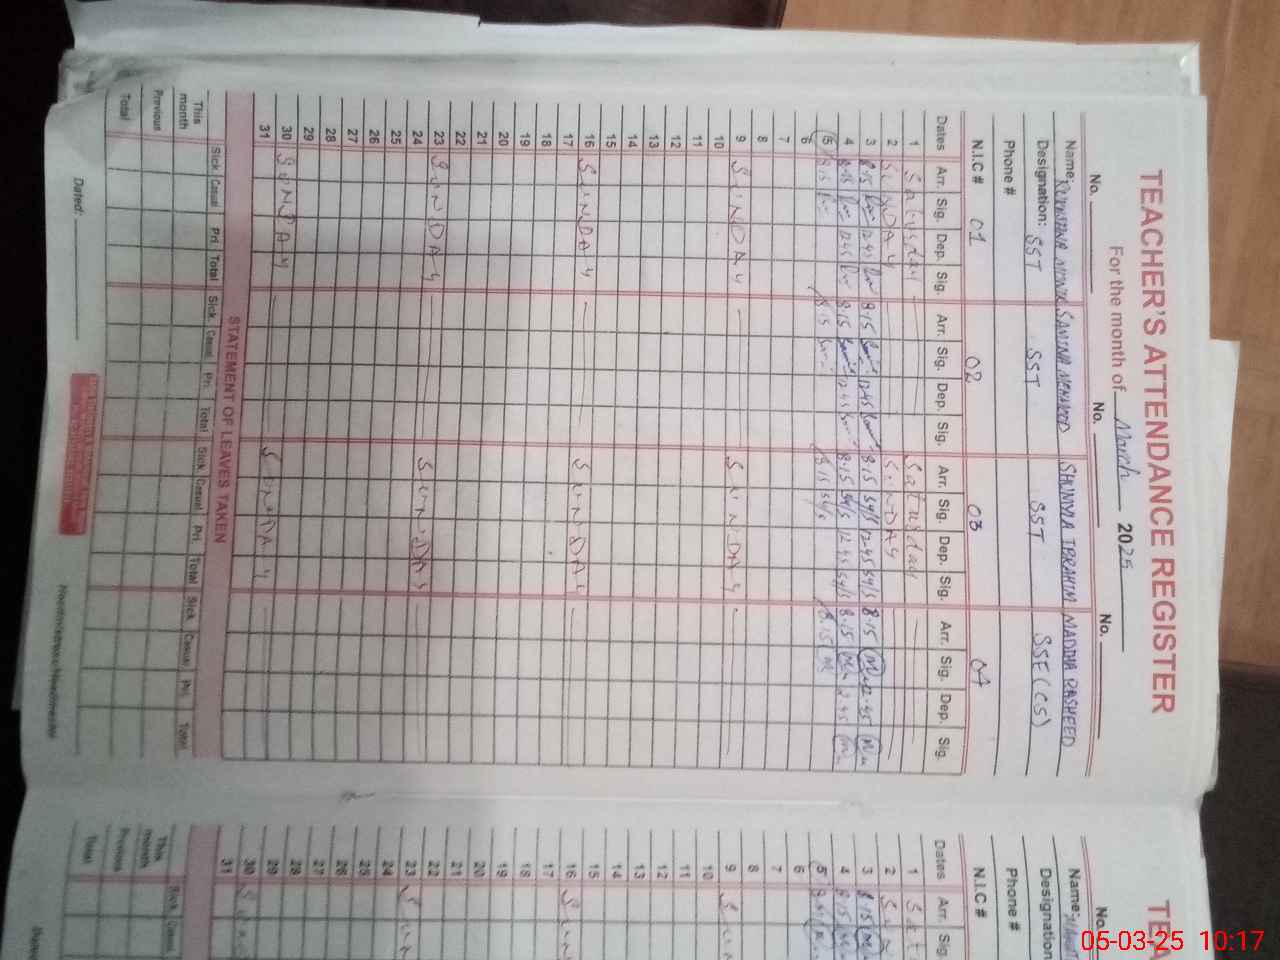 TEACHER'S ATTENDANCE REGISTER
For the month of March 2025
No. No. No.
Name: SAMINA MEHMOOD SHUMYLA IBRAHIM MADIHA RASHEED
Designation: SST SST SST SSE(CS)
Phone #
N.I.C # 01 02 03 04
Dates Arr. Sig. Dep. Sig. Arr. Sig. Dep. Sig. Arr. Sig. Dep. Sig. Arr. Sig. Dep. Sig.
1 Saturday Saturday
2 SUNDAY SUNDAY
3 8.15 12.45 8.15 12.45 8.15 12.45 8.15 12.45
4 8.15 12.45 8.15 12.45 8.15 12.45 8.15 2.45
5 8.15 8.15 8.15 8.15
6
7
8
9 SUNDAY SUNDAY
10
11
12
13
14
15
16 SUNDAY SUNDAY
17
18
19
20
21
22
23 SUNDAY SUNDAY
24
25
26
27
28
29
30 SUNDAY SUNDAY
31
STATEMENT OF LEAVES TAKEN
Sick Casual Pri. Total Sick Casual Pri. Total Sick Casual Pri. Total Sick Casual Pri. Total
This month
Previous
Total
Dated:
Headmistress/Headmaster
TEA
No.
Name:
Designation
Phone #
N.I.C #
Dates Arr. Sig.
1
2
3 8.15
4 8.15
5
6
7
8
9 Sun
10
11
12
13
14
15
16 Sun
17
18
19
20
21
22
23 Sun
24
25
26
27
28
29
30
31
Sick Casual
This month
Previous
Total
05-03-25 10:17